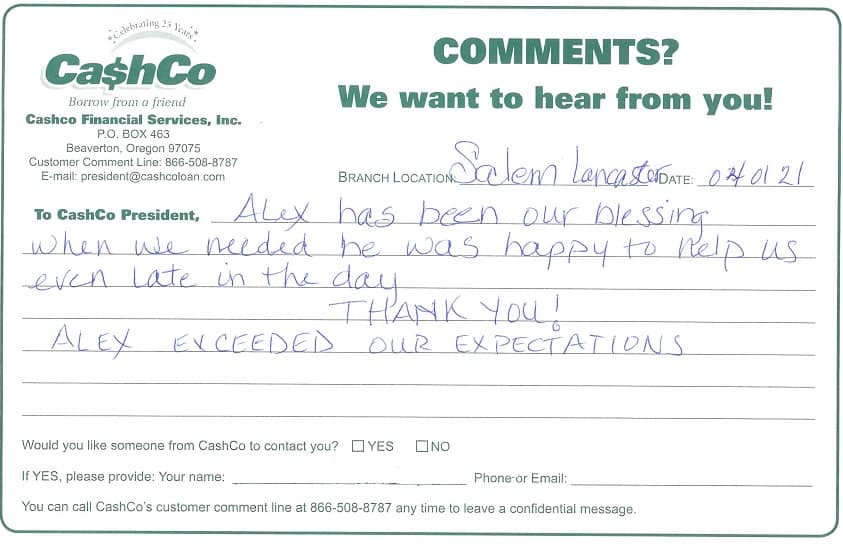 Celebrating 25 Years
Ca$hCo
Borrow from a friend
Cashco Financial Services, Inc.
P.O. BOX 463
Beaverton, Oregon 97075
Customer Comment Line: 866-508-8787
E-mail: president@cashcoloan.com
COMMENTS?
We want to hear from you!
BRANCH LOCATION Salem Lancaster DATE: 0 01 21
To CashCo President, Alex has been our blessing
when we needed he was happy to help us
even late in the day
THANK YOU!
ALEX EXCEEDED OUR EXPECTATIONS
Would you like someone from CashCo to contact you? ☐ YES ☐ NO
If YES, please provide: Your name: Phone or Email:
You can call CashCo's customer comment line at 866-508-8787 any time to leave a confidential message.